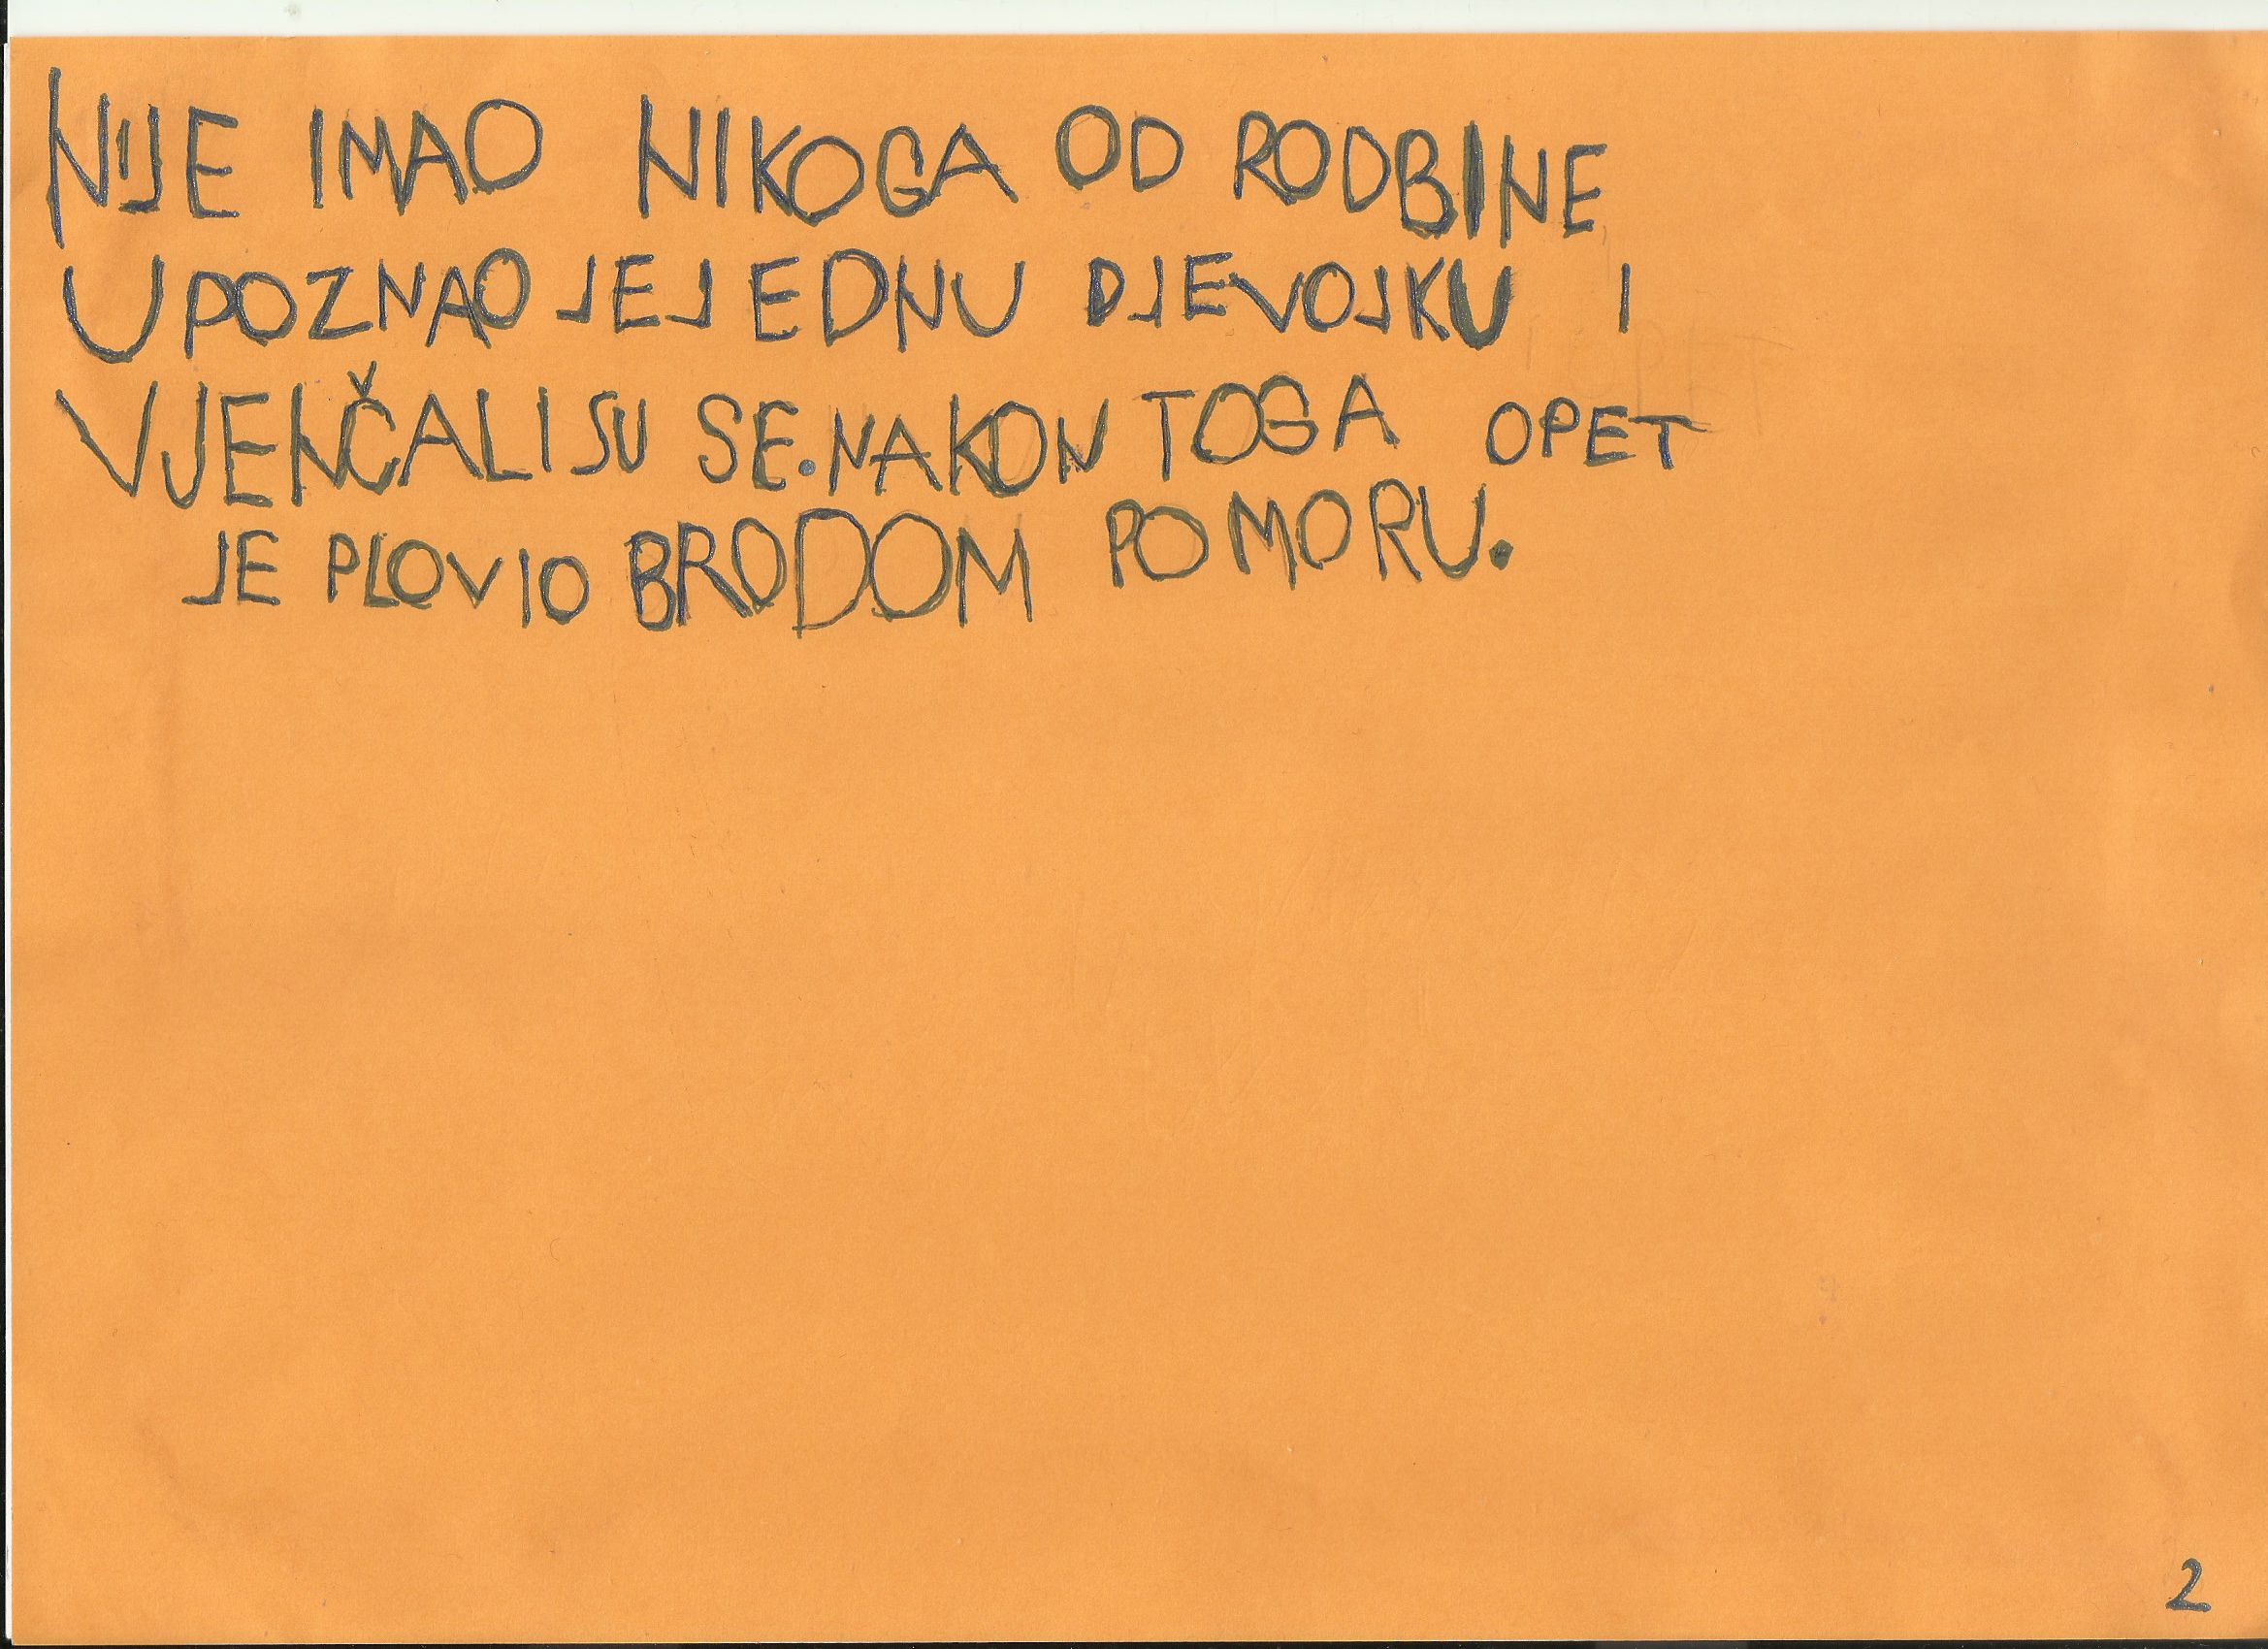 NIJE IMAO NIKOGA OD RODBINE
UPOZNAO JE JEDNU DJEVOJKU I
VJENČALI SU SE. NAKON TOGA OPET
JE PLOVIO BRODOM PO MORU.
2